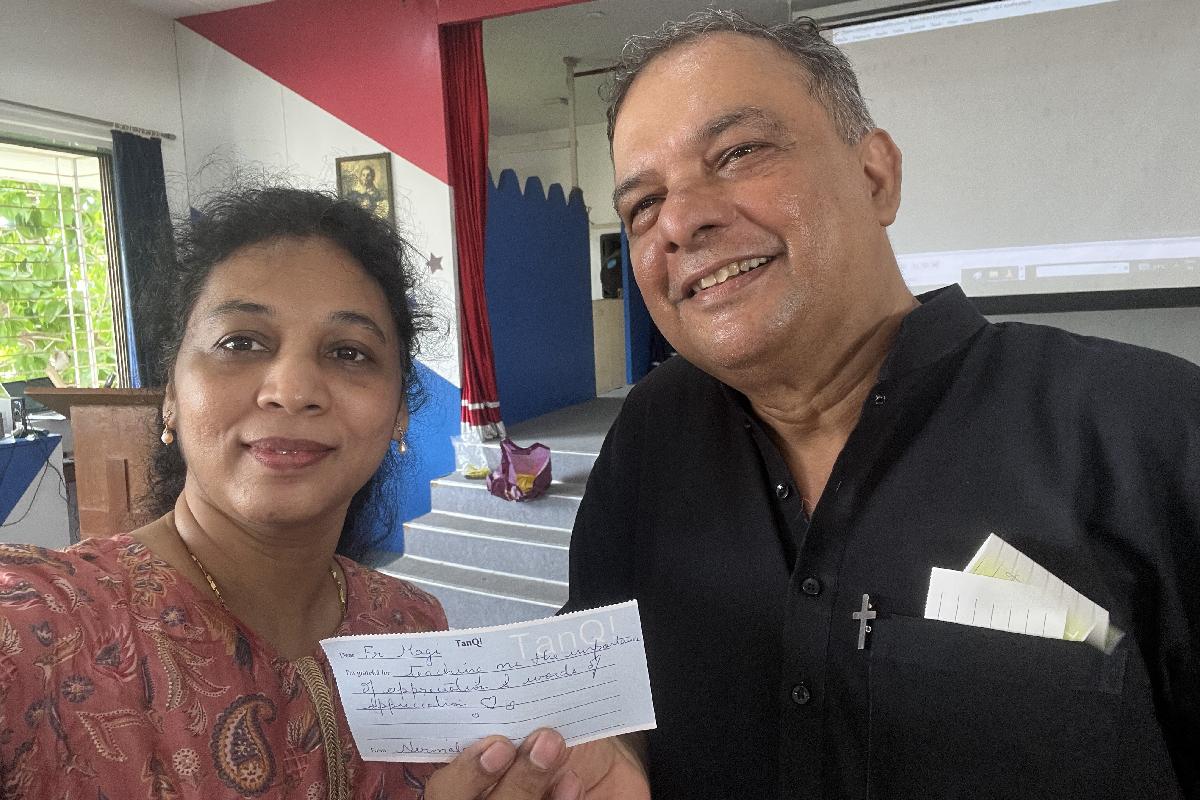 TanQ!
TanQ!
Dear Fr Magi
I'm grateful for teaching me the importance
of appreciation & words of
appreciation
From